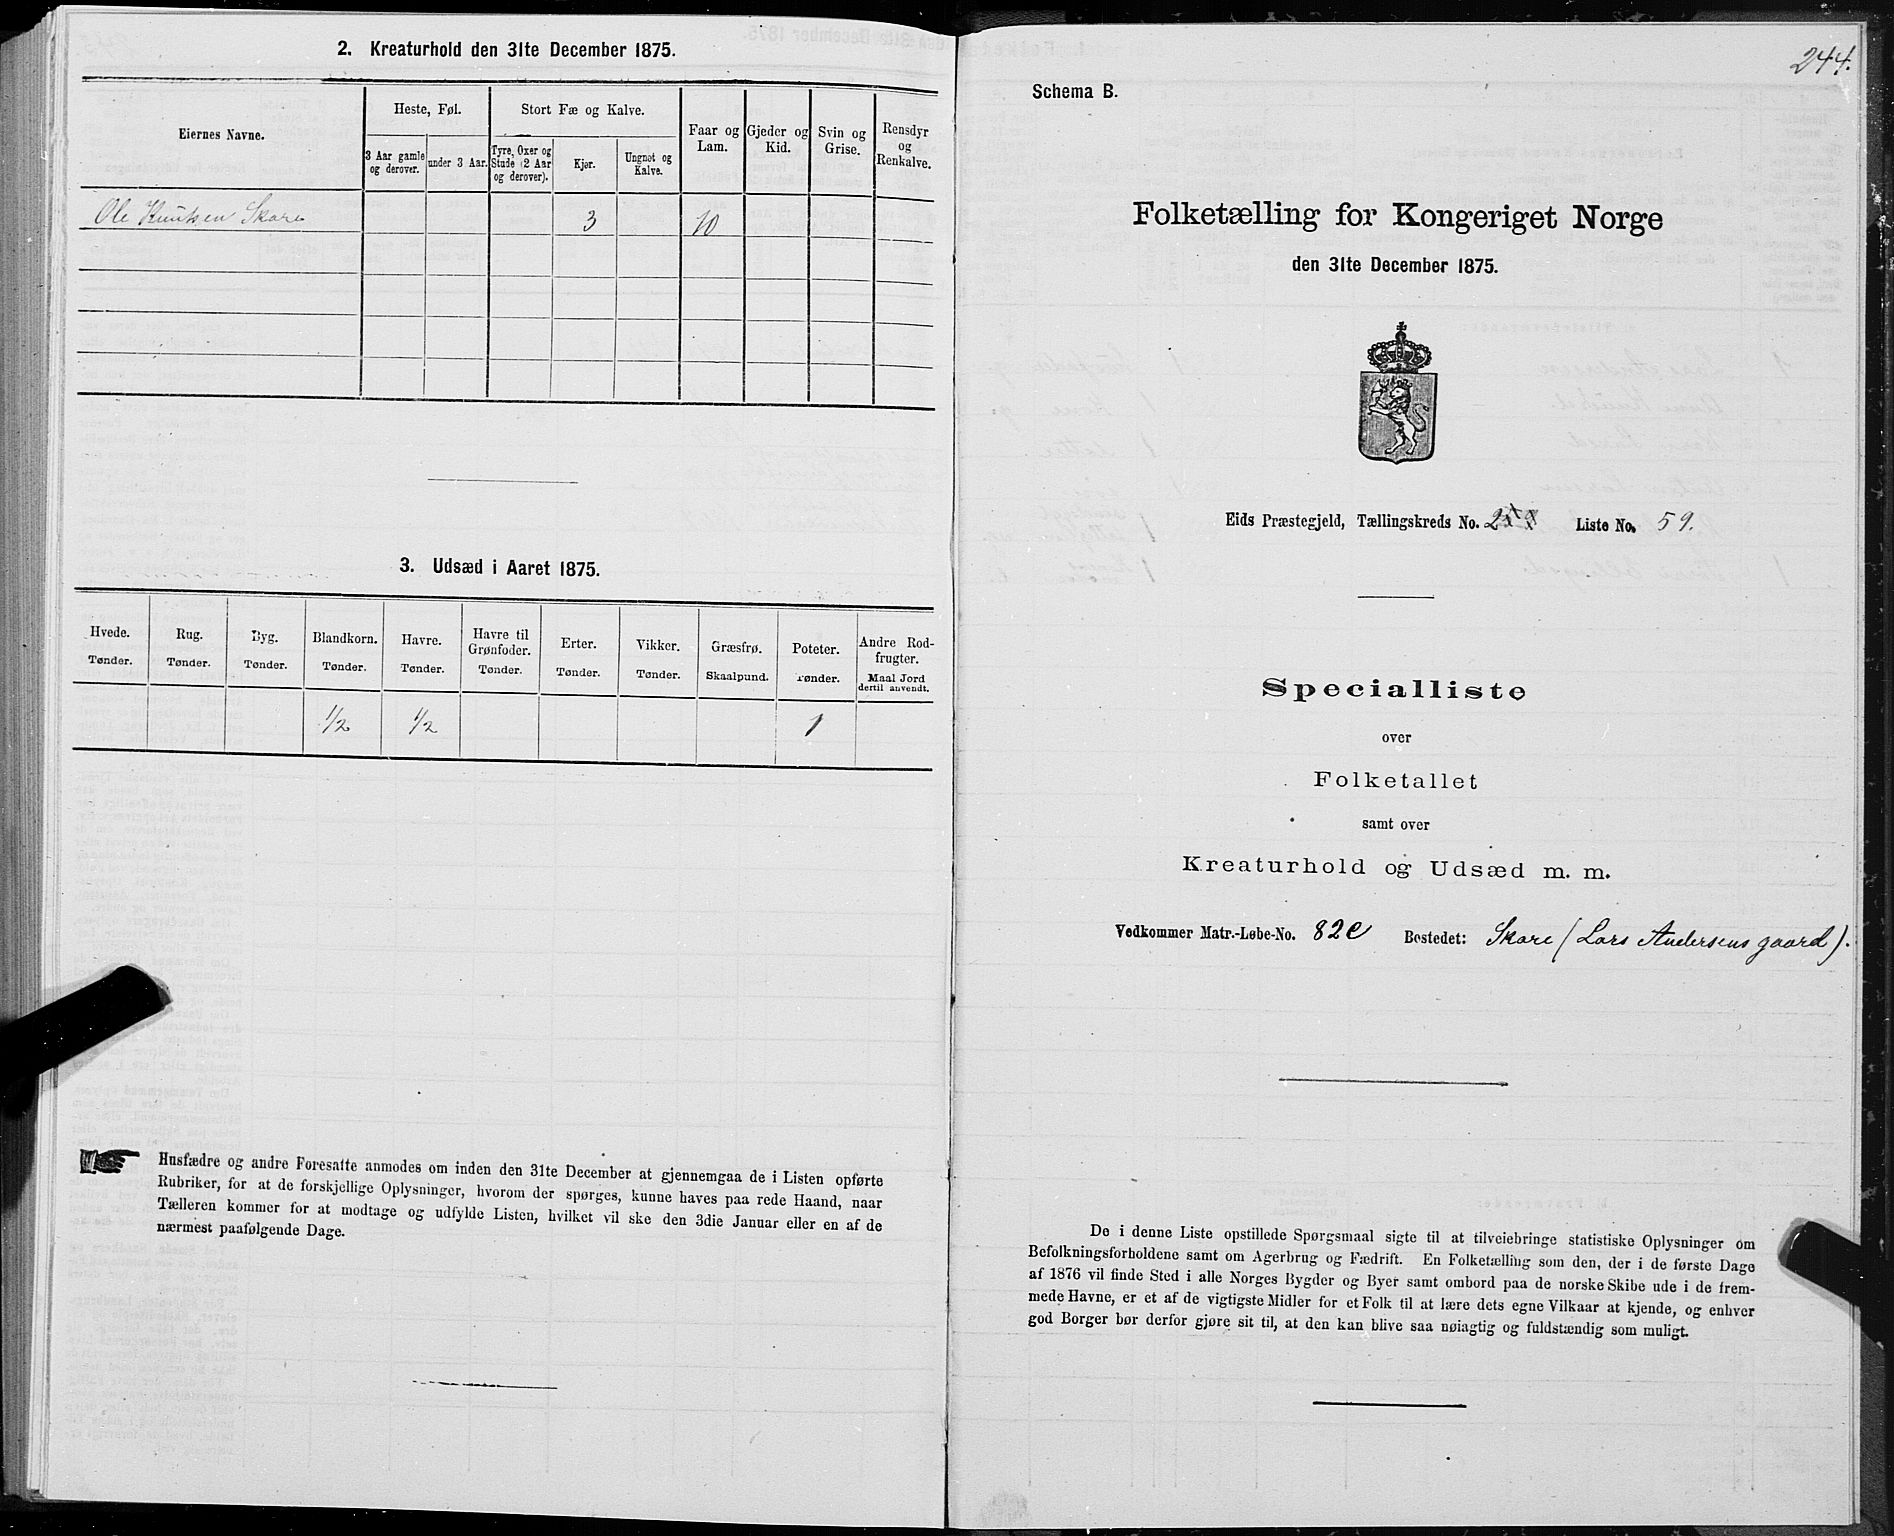 2. Kreaturhold den 31te December 1875.
Eiernes Navne.
Heste, Føl.
Stort Fæ og Kalve.
Faar og Lam.
Gjeder og Kid.
Svin og Grise.
Rensdyr og Renkalve.
3 Aar gamle og derover.
under 3 Aar.
Tyre, Oxer og Stude (2 Aar og derover).
Kjør.
Ungnøt og Kalve.
Ole Knutsen Skare 3 10
3. Udsæd i Aaret 1875.
Hvede. Rug. Byg. Blandkorn. Havre. Havre til Grønfoder. Erter. Vikker. Græsfrø. Poteter. Andre Rodfrugter.
Tønder. Tønder. Tønder. Tønder. Tønder. Tønder. Tønder. Tønder. Skaalpund. Tønder. Maal Jord dertil anvendt.
1/2 1/2 1
Husfædre og andre Foresatte anmodes om inden den 31te December at gjennemgaa de i Listen opførte
Rubriker, for at de forskjellige Oplysninger, hvorom der spørges, kunne haves paa rede Haand, naar
Tælleren kommer for at modtage og udfylde Listen, hvilket vil ske den 3die Januar eller en af de
nærmest paafølgende Dage.
244.
Schema B.
Folketælling for Kongeriget Norge
den 31te December 1875.
Eids Præstegjeld, Tællingskreds No. 2 Liste No. 59.
Specialliste
over
Folketallet
samt over
Kreaturhold og Udsæd m. m.
Vedkommer Matr.-Løbe-No. 82e Bostedet: Skare (Lars Andersens gaard).
De i denne Liste opstillede Spørgsmaal sigte til at tilveiebringe statistiske Oplysninger om
Befolkningsforholdene samt om Agerbrug og Fædrift. En Folketælling som den, der i de første Dage
af 1876 vil finde Sted i alle Norges Bygder og Byer samt ombord paa de norske Skibe ude i de frem-
mede Havne, er et af de vigtigste Midler for et Folk til at lære dets egne Vilkaar at kjende, og enhver
god Borger bør derfor gjøre sit til, at den kan blive saa nøiagtig og fuldstændig som muligt.